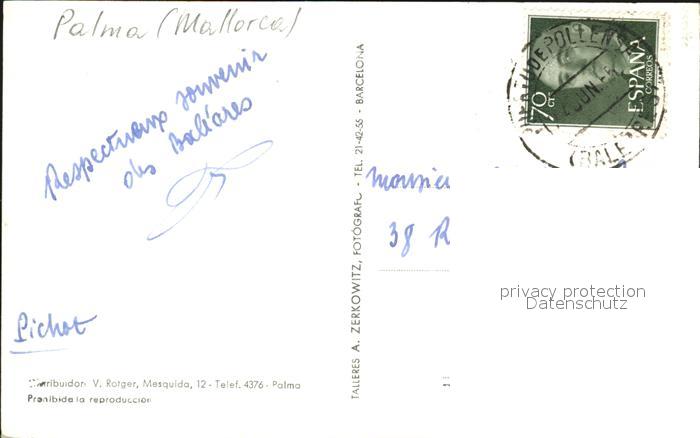 Palma (Mallorca)
Respectueux souvenir
des Baléares
Pichot
Distribuidor: V. Rotger, Mesquida, 12 - Telef. 4376 - Palma
Prohibida la reproducción
TALLERES A. ZERKOWITZ, FOTÓGRAFO - TEL. 21-42-55 - BARCELONA
70 CTS
ESPAÑA
CORREOS
PUERTO DE POLLENSA
JUN.
(BALEARES)
Monsie
38 R
privacy protection
Datenschutz